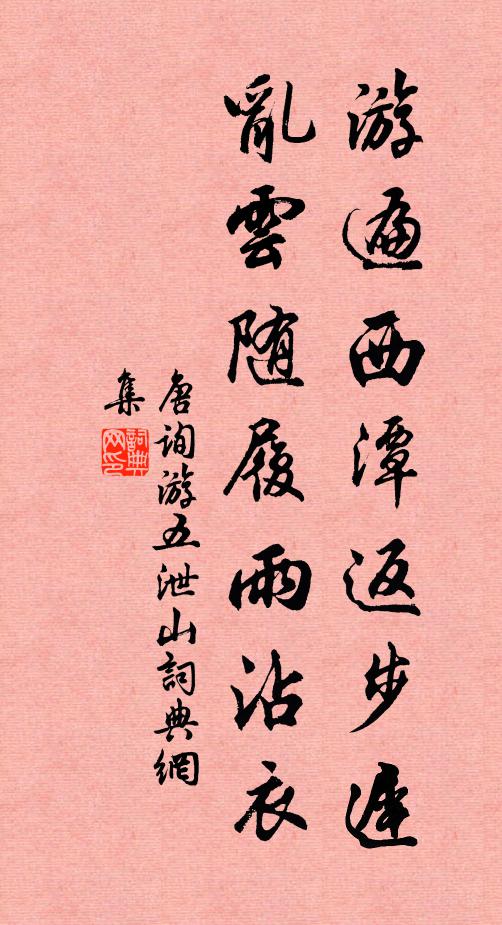 游遍西潭返步遲
亂雲随履雨沾衣
唐詢游五泄山詞典網
集
詞典
网印